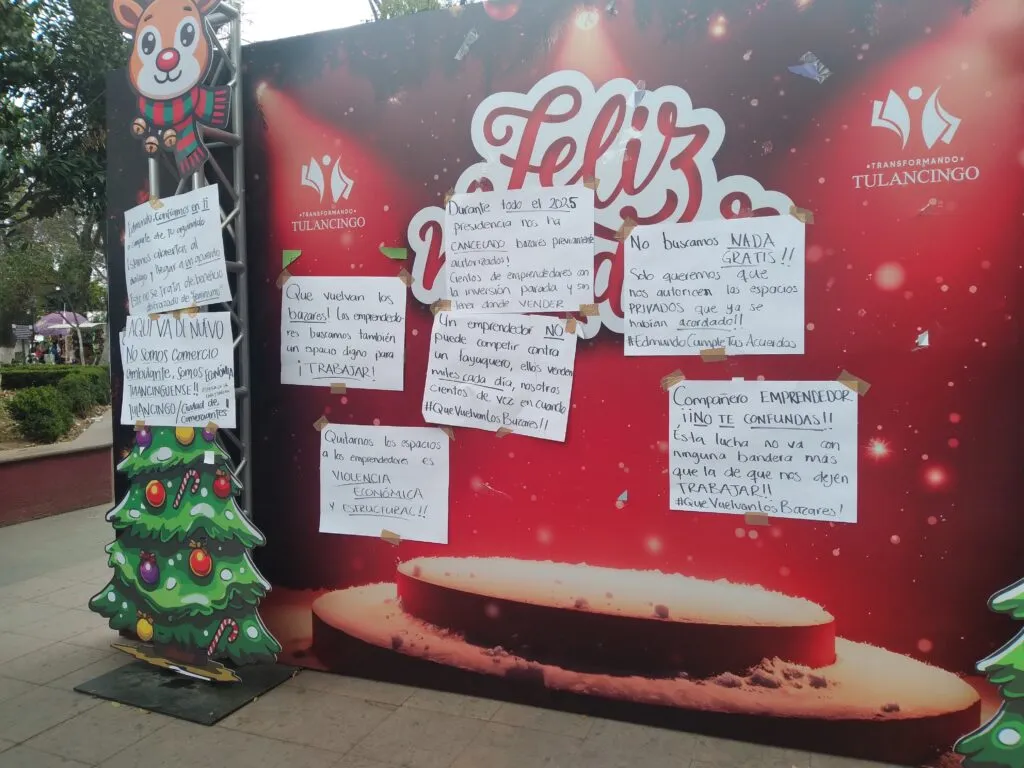 Feliz
TRANSFORMANDO
TULANCINGO
TRANSFORMANDO
TULANCINGO
¡Edmundo! Confiamos en ti
cumple
¡Pagar a un
Este no se trata de
AQUI VA DE NUEVO
No somos Comercio
ambulante, somos ECONOMÍA
TULANCINGUENSE!!
TULANCINGO/Ciudad de
Comerciantes!
Que vuelvan los
bazares! Los emprendedo
res buscamos también
un espacio digno para
¡TRABAJAR!
Quitarnos los espacios
a los emprendedores es
VIOLENCIA
ECONÓMICA
Y ESTRUCTURAL!!
Durante todo el 2025
presidencia nos ha
CANCELADO bazares previamente
autorizados!
Cientos de emprendedores con
la inversión parada y sin
tener donde VENDER
Un emprendedor NO
puede competir contra
un tayaquero, ellos venden
miles cada día, nosotros
cientos de vez en cuando
#QueVuelvanLosBazares!!
No buscamos NADA
GRATIS!!
Solo queremos que
nos autoricen los espacios
PRIVADOS que ya se
habían acordado!!
#EdmundoCumpleTusAcuerdos
Compañero EMPRENDEDOR
¡¡NO TE CONFUNDAS!!
Ésta lucha no va con
ninguna bandera más
que la de que nos dejen
TRABAJAR!!
#QueVuelvanLosBazares!